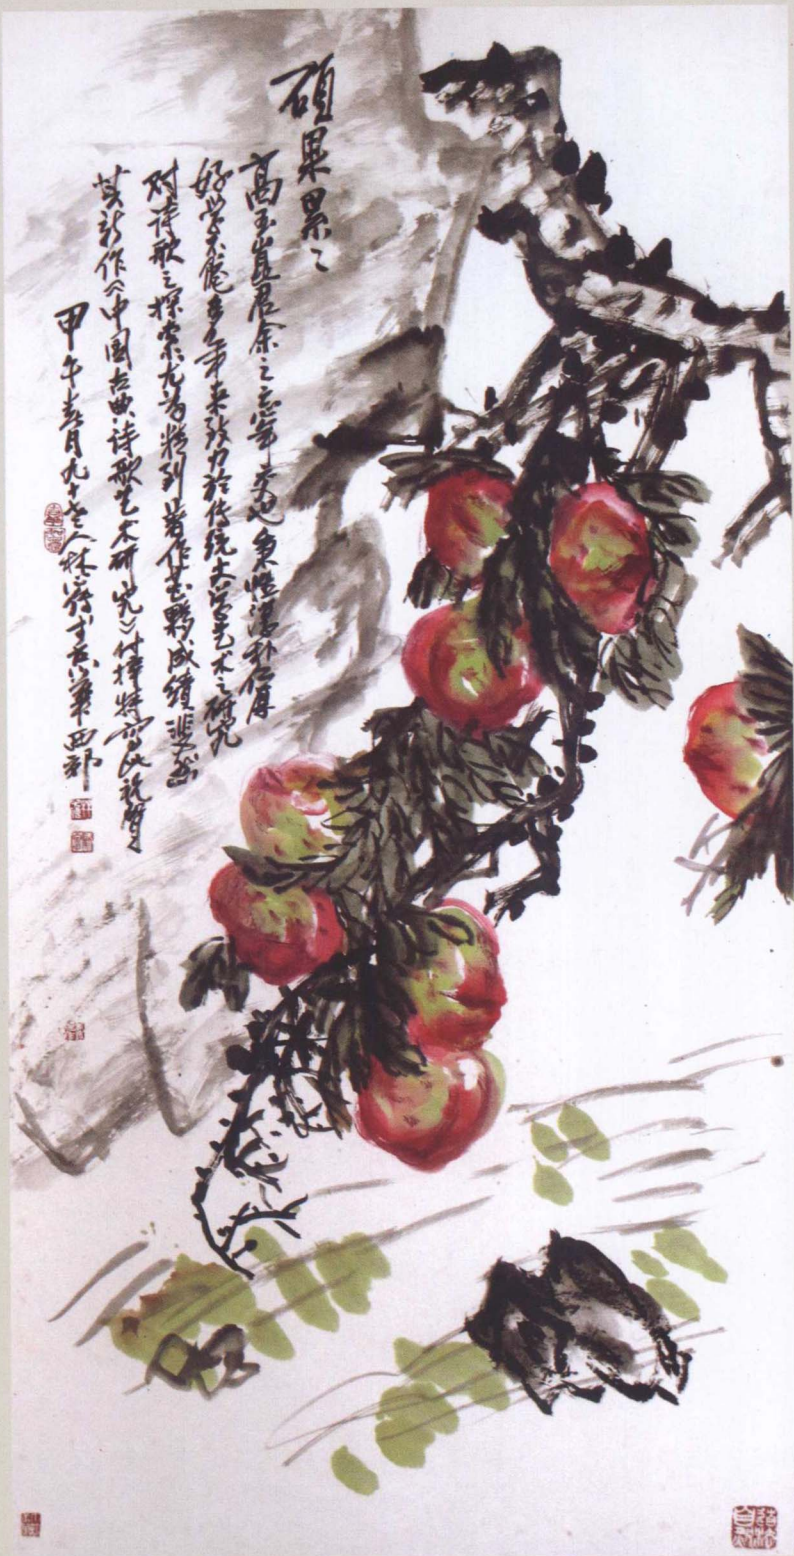 碩果累〻
高玉崑君余之忘年交也秉性淳朴仁厚
好学不倦多年来致力於传统文学艺术之研究
对诗歌之探索尤为精到著作甚夥成绩斐然
其新作《中国古典诗歌艺术研究》付梓特写此祝贺
甲午春月九十老人林于京華西郊